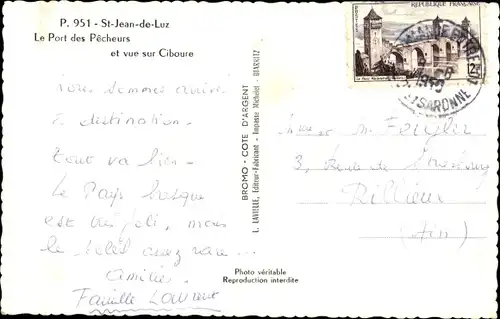 P. 951 - St-Jean-de-Luz
Le Port des Pêcheurs
et vue sur Ciboure
Nous sommes arrivés
à destination.
Tout va bien -
Le Pays basque
est très joli, mais
le soleil assez rare...
Amitiés
Famille Laurent
BROMO - COTE D'ARGENT
L. LAVIELLE, Editeur-Fabricant - Impasse Michelet - BIARRITZ
REPUBLIQUE FRANÇAISE
Mme et M. Feigler
3, Route de Strasbourg
Rillieux
(Ain)
Photo véritable
Reproduction interdite